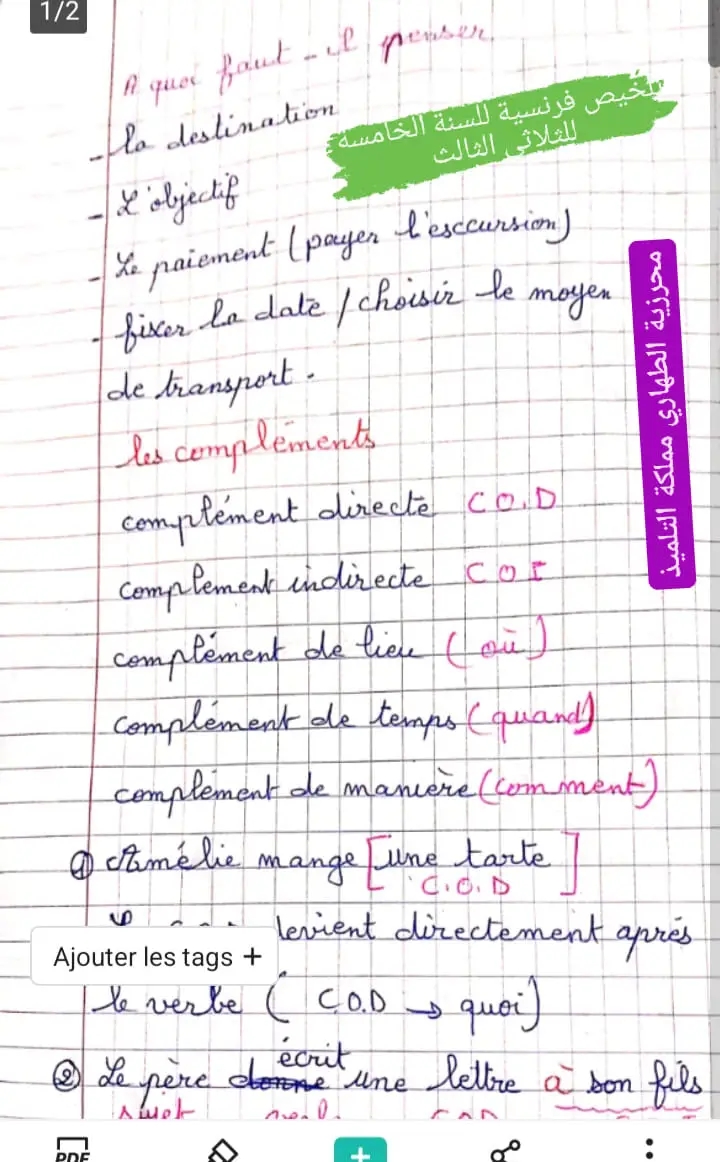 1/2
A quoi faut-il penser
تلخيص فرنسية للسنة الخامسة
للثلاثي الثالث
- la destination
- L'objectif
- Le paiement (payer l'esccursion)
- fixer la date / choisir le moyen
de transport.
محرزية الطهاري مملكة التلميذ
les compléments
complément directe C O.D
complement indirecte C O I
complément de lieu (où)
complément de temps (quand)
complément de manière (comment)
① Amélie mange [une tarte]
C.O.D
directement après
Ajouter les tags +
le verbe ( C.O.D → quoi)
écrit
② Le père donne une lettre à son fils
sujet
PDF